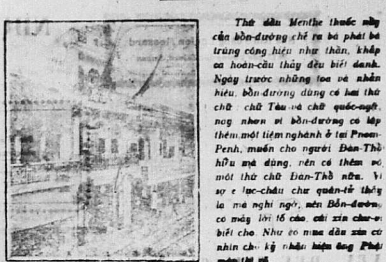 Thứ dầu Menthe thuốc nầy
của bổn-đường chế ra bá phát bá
trúng công hiệu như thần, khắp
cả hoàn-cầu thảy đều biết danh.
Ngày trước những toa và nhãn
hiệu, bổn-đường dùng có hai thứ
chữ chữ Tàu và chữ quốc-ngữ
nay nhơn vì bổn-đường có lập
thêm một tiệm nghánh ở tại Pnom-
Penh, muốn cho người Đàn-Thổ
hữu mà dùng, nên có thêm vô
một thứ chữ Đàn-Thổ nữa. Vì
sợ e lục-châu chư quân-tử thấy
lạ mà nghi ngờ, nên Bổn-đường
có mấy lời tỏ cáo, cúi xin chư-vị
biết cho. Như có mua dầu xin cứ
nhìn cho kỹ nhãn hiệu ông Phật